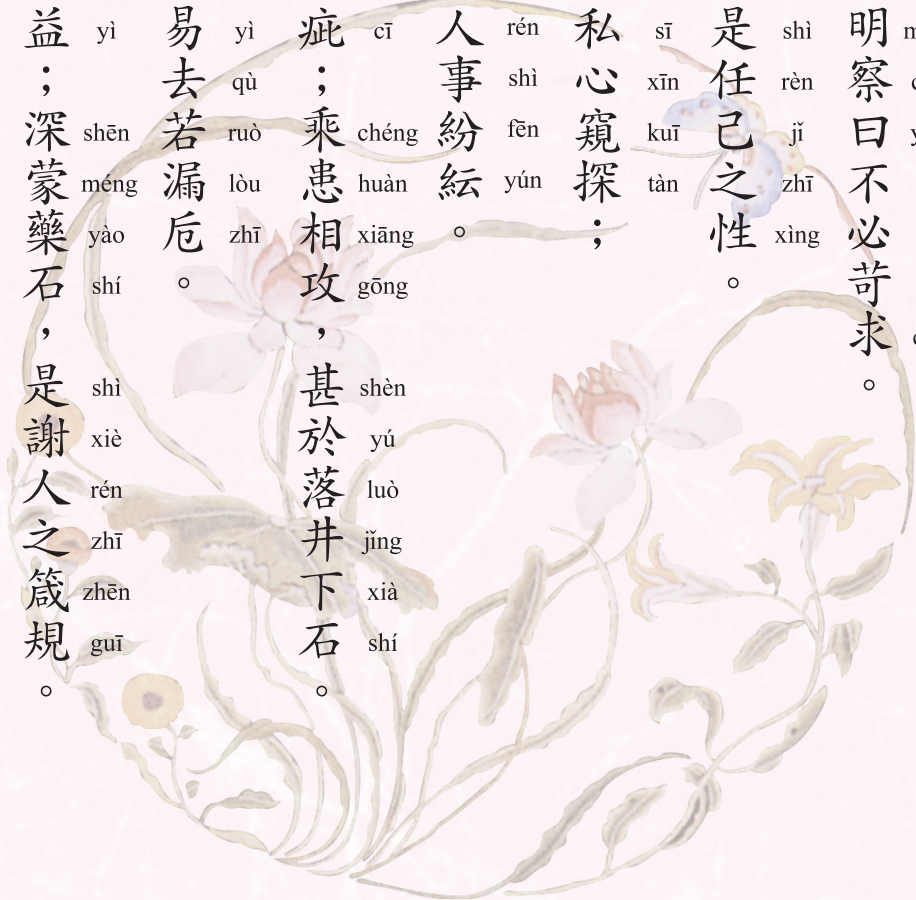 明察曰不必苛求。
是任己之性。
shì rèn jǐ zhī xìng
私心窺探；
sī xīn kuī tàn
人事紛紜。
rén shì fēn yún
疵；乘患相攻，甚於落井下石。
cī chéng huàn xiāng gōng shèn yú luò jǐng xià shí
易去若漏卮。
yì qù ruò lòu zhī
益；深蒙藥石，是謝人之箴規。
yì shēn méng yào shí shì xiè rén zhī zhēn guī